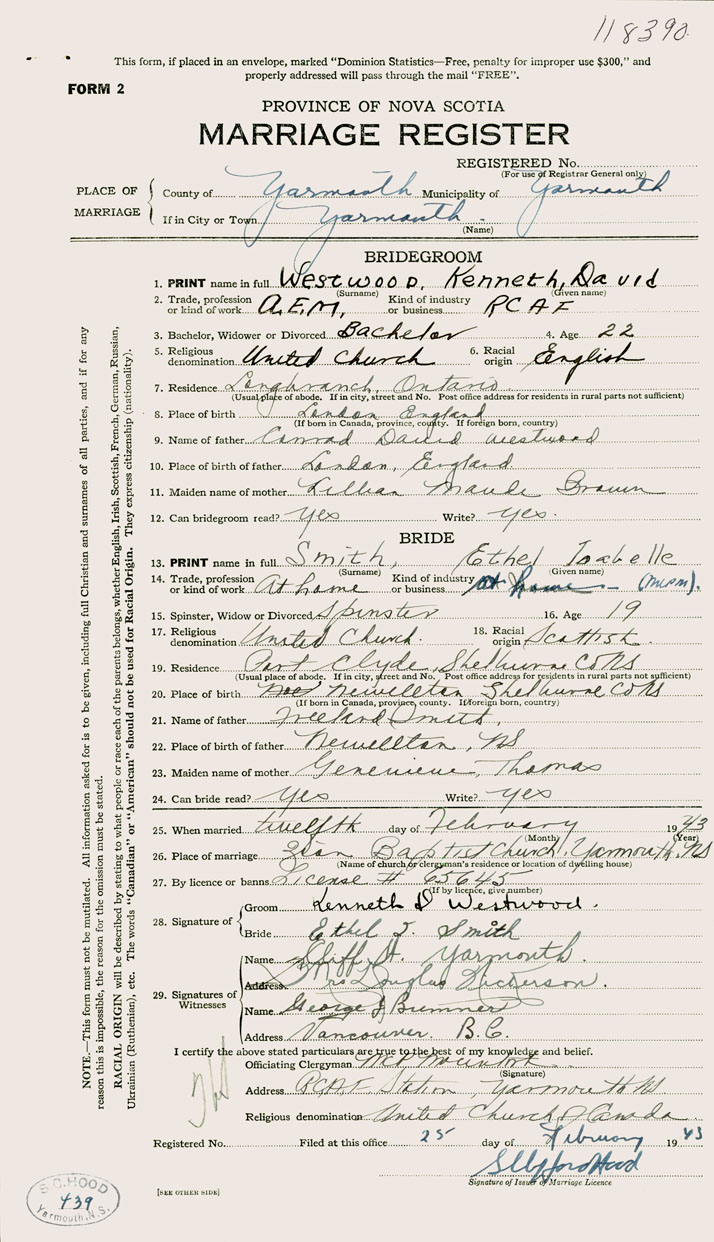 118390
This form, if placed in an envelope, marked "Dominion Statistics—Free, penalty for improper use $300," and
properly addressed will pass through the mail "FREE".
FORM 2
PROVINCE OF NOVA SCOTIA
MARRIAGE REGISTER
REGISTERED No.
(For use of Registrar General only)
PLACE OF MARRIAGE
County of Yarmouth Municipality of Yarmouth
If in City or Town Yarmouth
(Name)
BRIDEGROOM
1. PRINT name in full Westwood, Kenneth, David
(Surname) (Given name)
2. Trade, profession or kind of work A.E.M. Kind of industry or business RCAF
3. Bachelor, Widower or Divorced Bachelor 4. Age 22
5. Religious denomination United Church 6. Racial origin English
7. Residence Longbranch, Ontario
(Usual place of abode. If in city, street and No. Post office address for residents in rural parts not sufficient)
8. Place of birth London England
(If born in Canada, province, county. If foreign born, country)
9. Name of father Conrad David Westwood
10. Place of birth of father London, England
11. Maiden name of mother Lillian Maude Brown
12. Can bridegroom read? Yes Write? Yes.
BRIDE
13. PRINT name in full Smith, Ethel Isabelle
(Surname) (Given name)
14. Trade, profession or kind of work At home Kind of industry or business at home
15. Spinster, Widow or Divorced Spinster 16. Age 19
17. Religious denomination United Church. 18. Racial origin Scottish.
19. Residence Port Clyde, Shelburne Co NS
(Usual place of abode. If in city, street and No. Post office address for residents in rural parts not sufficient)
20. Place of birth Newellton Shelburne Co NS
(If born in Canada, province, county. If foreign born, country)
21. Name of father Freeland Smith,
22. Place of birth of father Newellton, NS
23. Maiden name of mother Genevieve, Thomas
24. Can bride read? Yes Write? Yes
25. When married twelfth day of February 1943
(Month) (Year)
26. Place of marriage Zion Baptist Church, Yarmouth, NS
(Name of church or clergyman's residence or location of dwelling house)
27. By licence or banns License # 65645
(If by licence, give number)
28. Signature of
Groom Kenneth D Westwood.
Bride Ethel I. Smith
29. Signatures of Witnesses
Name Cliff St. Yarmouth.
Address Mrs Douglas Nickerson.
Name George J
Address Vancouver. B.C.
I certify the above stated particulars are true to the best of my knowledge and belief.
Officiating Clergyman
(Signature)
Address RCAF Station, Yarmouth NS
Religious denomination United Church of Canada
Registered No. Filed at this office 25 day of February 1943
Signature of Issuer of Marriage Licence
[SEE OTHER SIDE]
S. C. HOOD
439
Yarmouth, N.S.
NOTE.—This form must not be mutilated. All information asked for is to be given, including full Christian and surnames of all parties, and if for any
reason this is impossible, the reason for the omission must be stated.
RACIAL ORIGIN will be described by stating to what people or race each of the parents belongs, whether English, Irish, Scottish, French, German, Russian,
Ukrainian (Ruthenian), etc. The words "Canadian" or "American" should not be used for Racial Origin. They express citizenship (nationality).